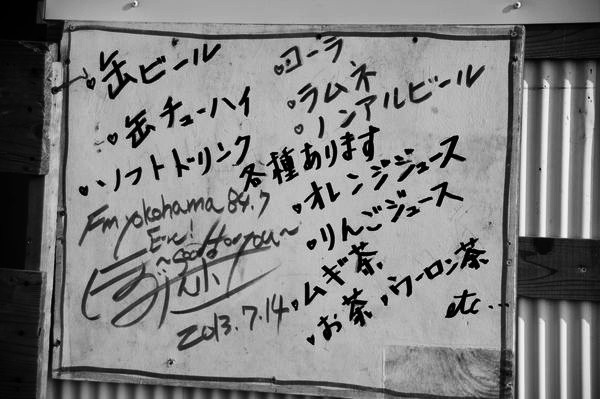 ♥缶ビール
♥缶チューハイ
・ソフトドリンク
各種あります
・コーラ
・ラムネ
・ノンアルビール
・オレンジジュース
・りんごジュース
・ムギ茶
・お茶・ウーロン茶
etc...
Fm yokohama 84.7
E〜ne!
〜good for you〜
2013.7.14